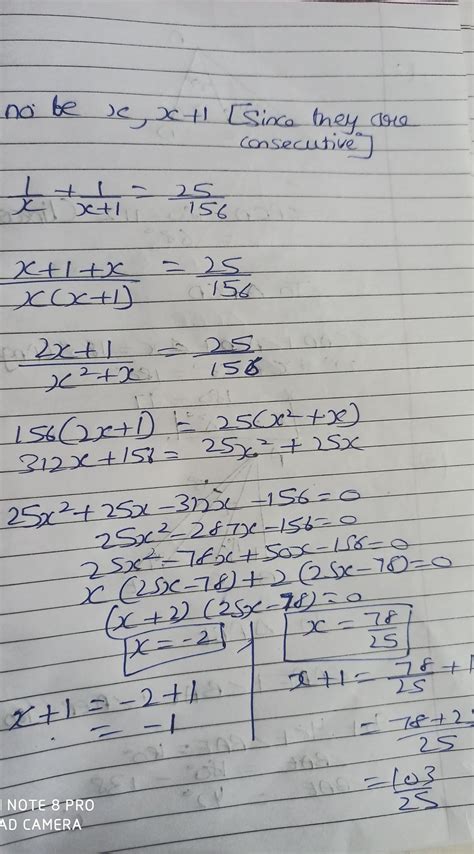 no be x, x+1 [Since they are
consecutive]
1/x + 1/x+1 = 25/156
x+1+x/x(x+1) = 25/156
2x+1/x²+x = 25/156
156(2x+1) = 25(x²+x)
312x+156 = 25x² + 25x
25x²+25x-312x-156=0
25x²-287x-156=0
25x²-78x+50x-156=0
x(25x-78)+2(25x-78)=0
(x+2)(25x-78)=0
x=-2
x = 78/25
x+1 = -2+1
= -1
x+1 = 78/25 + 1
= 78+2/25
= 103/25
NOTE 8 PRO
AD CAMERA